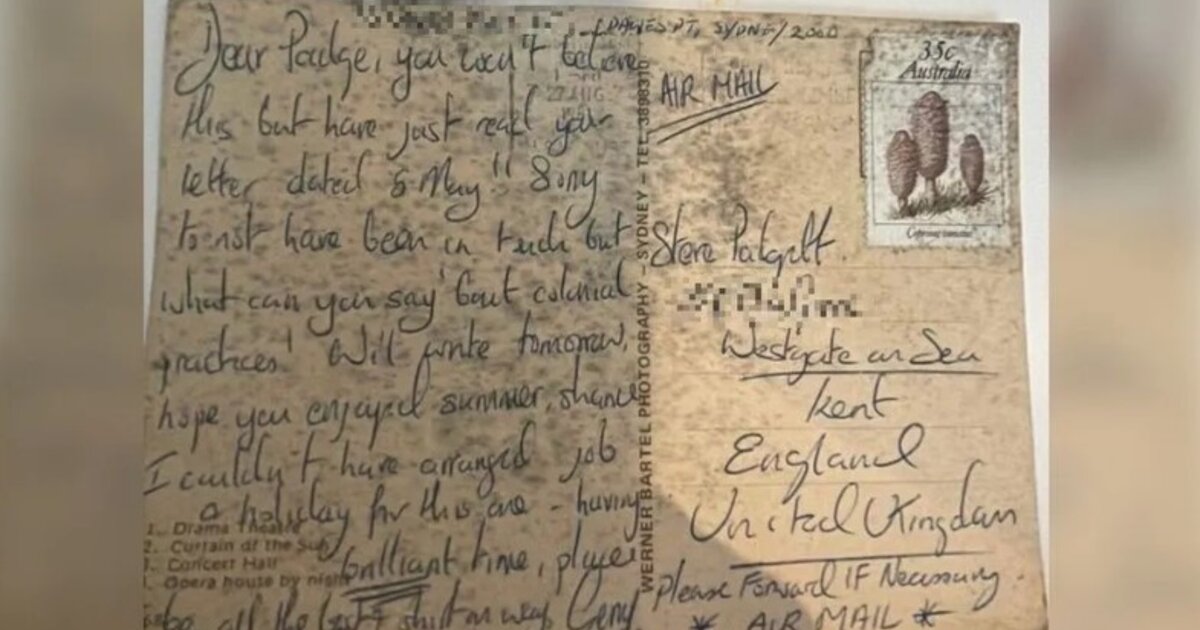 DAWES PT, SYDNEY 2000
Dear Padge, you won't believe
this but have just read your
letter dated 5 May!! Sorry
to not have been in touch but
what can you say 'bout colonial
practices! Will write tomorrow,
hope you enjoyed summer, shame
I couldn't have arranged job
a holiday for this one - having
brilliant time,
be all the best
1. Drama Theatre
2. Curtain of the Sun
3. Concert Hall
4. Opera house by night
WERNER BARTEL PHOTOGRAPHY – SYDNEY – TEL: 3898310
27 AUG
AIR MAIL
35c
Australia
Steve Padgett.
Westgate on Sea
Kent
England
United Kingdom
Please Forward IF Necessary.
* AIR MAIL *